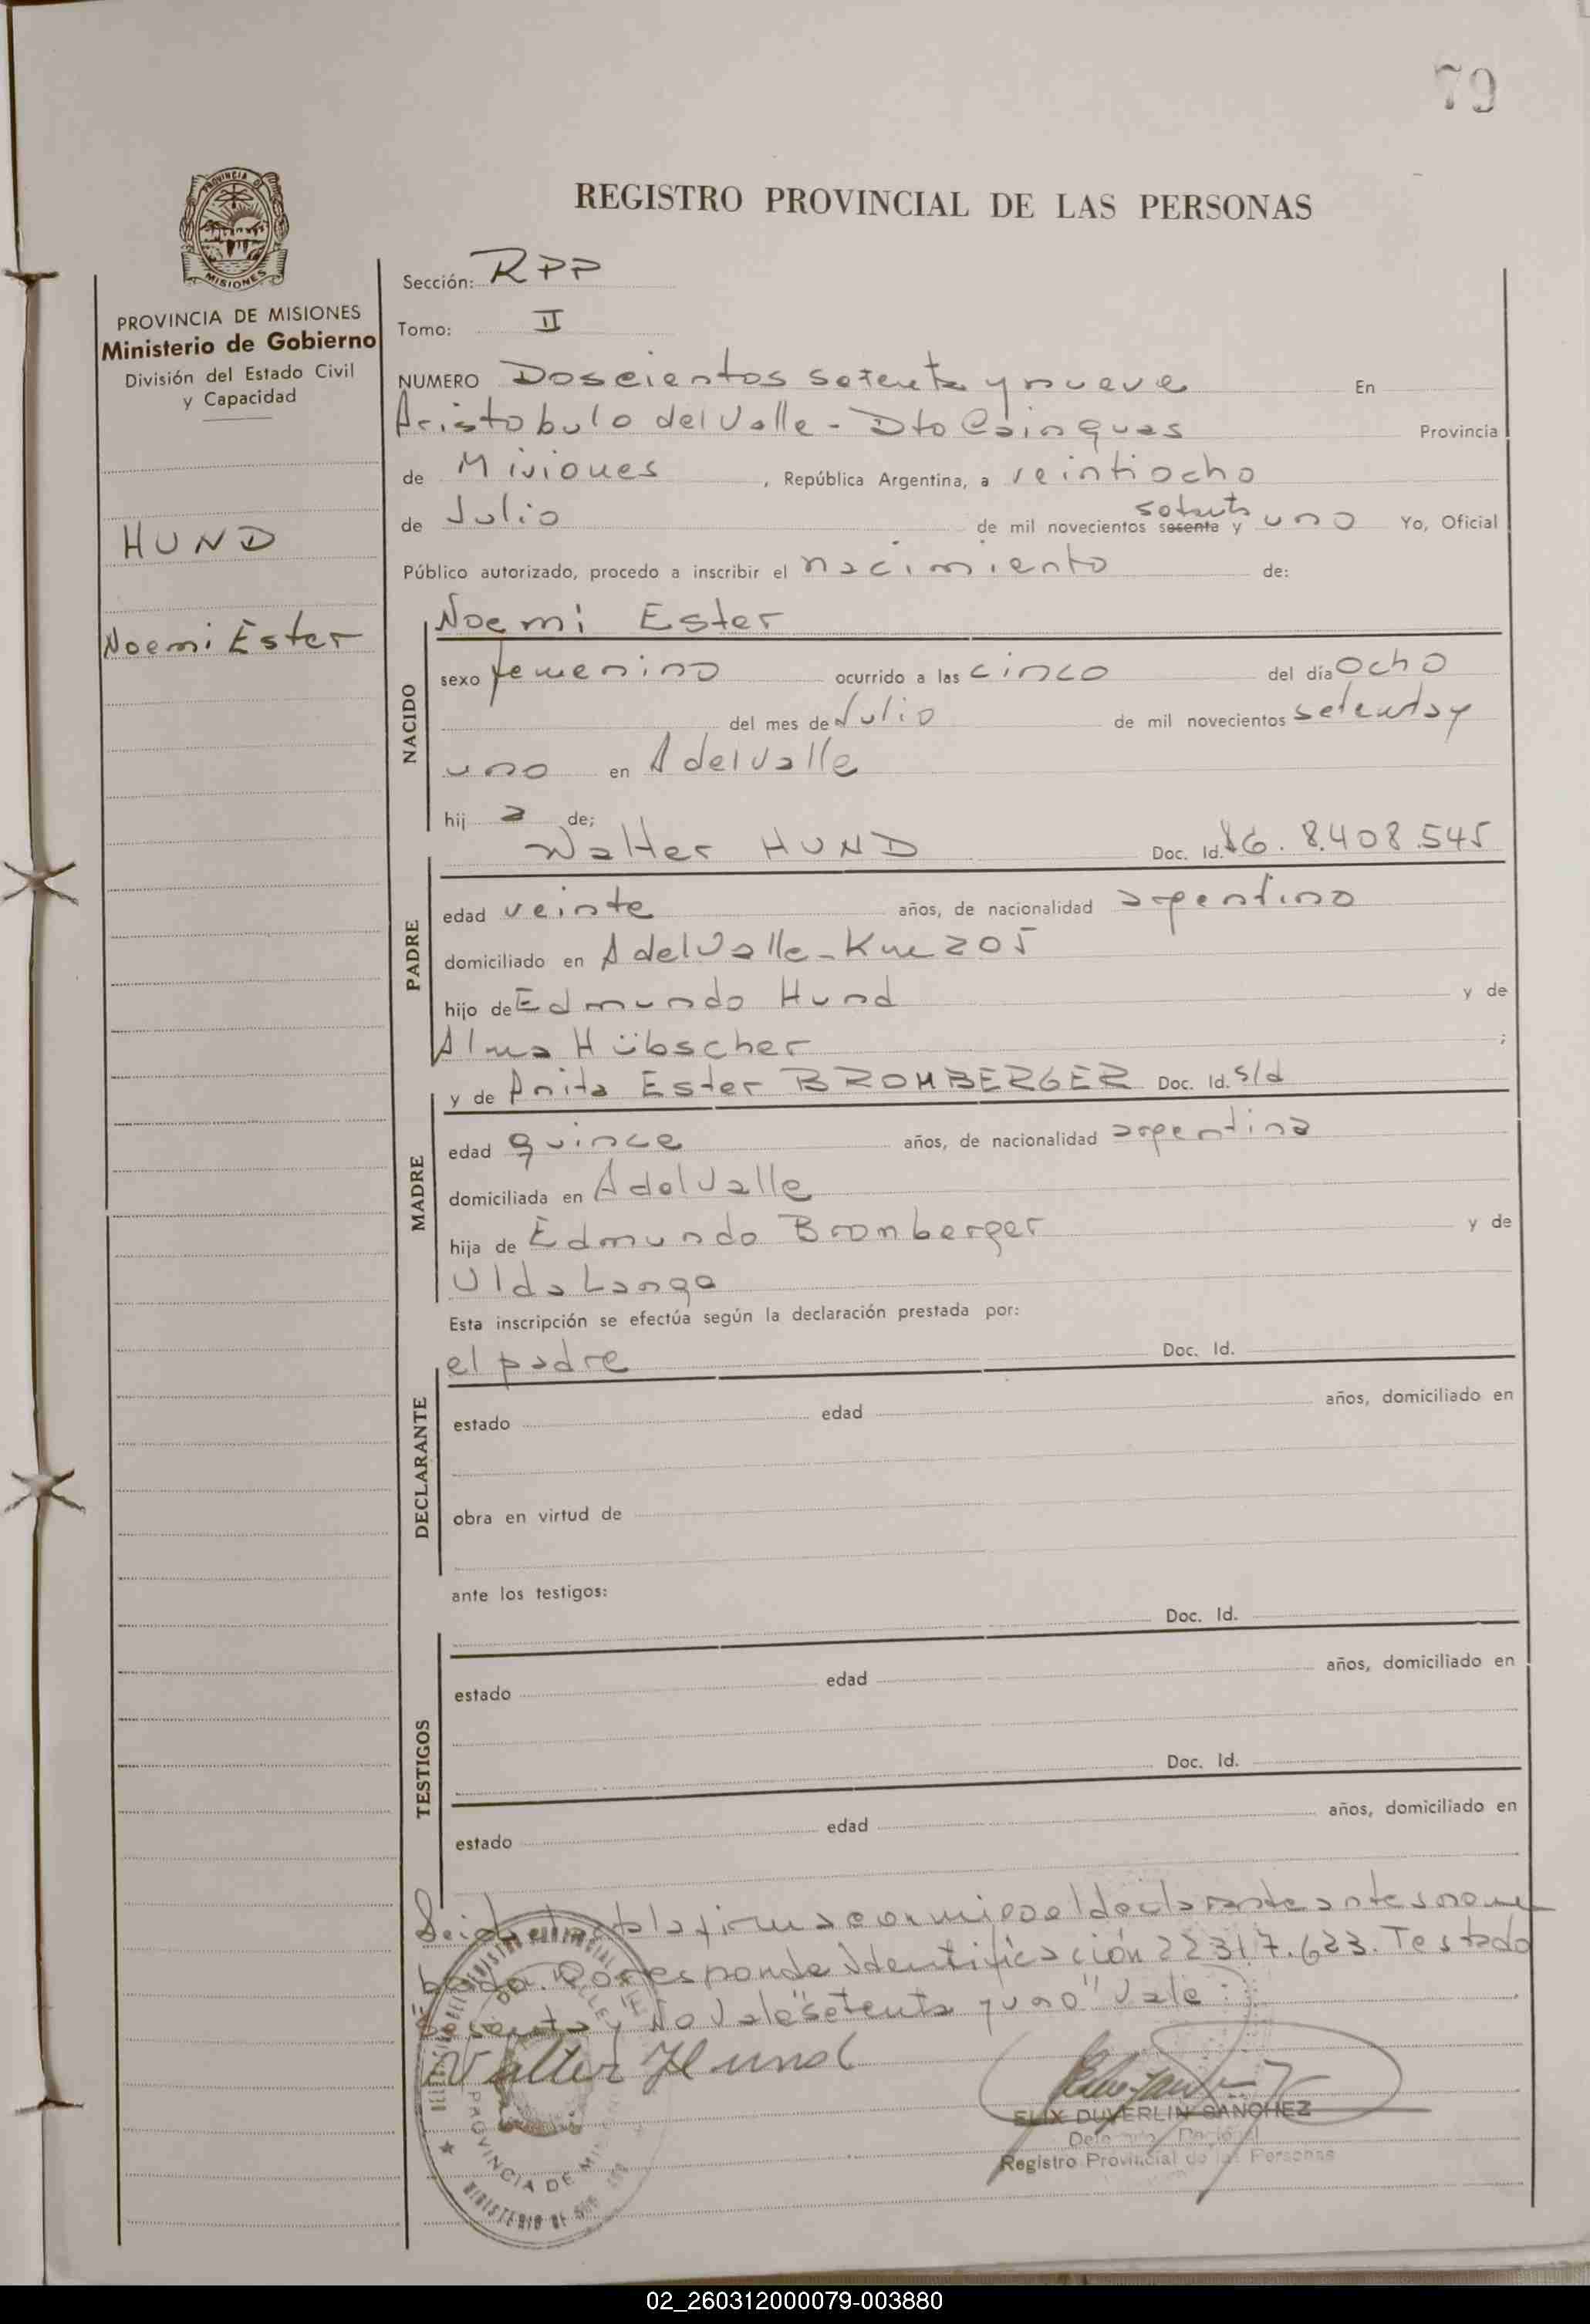 79
PROVINCIA DE
MISIONES
REGISTRO PROVINCIAL DE LAS PERSONAS
PROVINCIA DE MISIONES
Ministerio de Gobierno
División del Estado Civil
y Capacidad
HUND
Noemi Ester
Sección: RPP
Tomo: II
NUMERO Doscientos setenta y nueve En
Aristobulo del Valle - Dto Cainguas Provincia
de Misiones , República Argentina, a veintiocho
setenta
de Julio de mil novecientos sesenta y uno Yo, Oficial
Público autorizado, procedo a inscribir el nacimiento de:
NACIDO
Noemi Ester
sexo femenino ocurrido a las cinco del día ocho
del mes de Julio de mil novecientos setenta y
uno en A del Valle
hij a de;
PADRE
Walter HUND Doc. Id. 8.408.545
edad veinte años, de nacionalidad argentino
domiciliado en A del Valle - Km 205
hijo de Edmundo Hund y de
Alma Hübscher ;
MADRE
y de Anita Ester BROMBERGER Doc. Id. s/d
edad quince años, de nacionalidad argentina
domiciliada en A del Valle
hija de Edmundo Bromberger y de
Ulda Langa
Esta inscripción se efectúa según la declaración prestada por:
DECLARANTE
el padre Doc. Id.
estado edad años, domiciliado en
obra en virtud de
ante los testigos:
TESTIGOS
Doc. Id.
estado edad años, domiciliado en
Doc. Id.
estado edad años, domiciliado en
la firma conmigo el declarante antes nom
brado. Corresponde Identificación 22317.623. Testado
"Sesenta y" No Vale "setenta y uno" Vale:
Walter Hund
ELIX DUVERLIN SANCHEZ
Registro Provincial de las Personas
PROVINCIA DE MISIONES
MINISTERIO DE
02_260312000079-003880